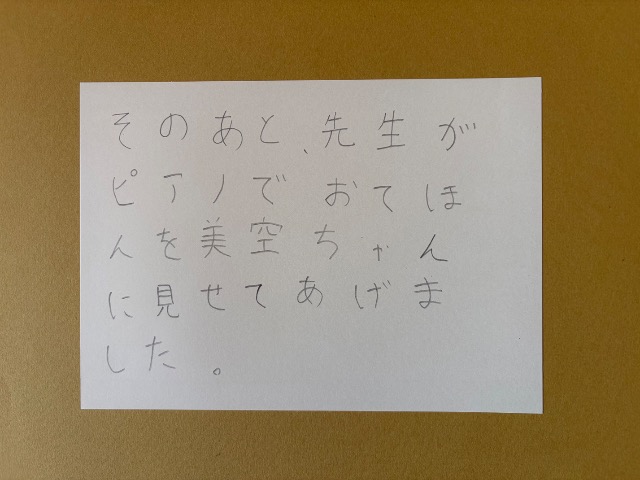 そのあと、先生が
ピアノでおてほ
んを美空ちゃん
に見せてあげま
した。